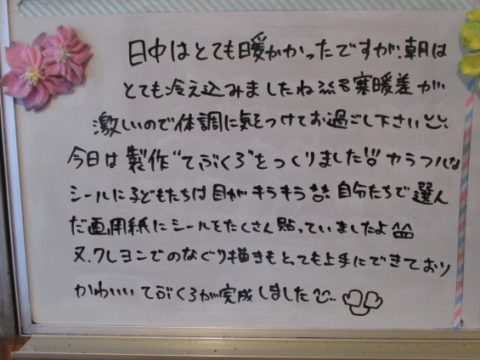 日中はとても暖かかったですが、朝は
とても冷え込みましたね 寒暖差が
激しいので体調に気をつけてお過ごし下さい
今日は製作"てぶくろ"をつくりました!! カラフルな
シールに子どもたちは目がキラキラ 自分たちで選ん
だ画用紙にシールをたくさん貼っていましたよ
又、クレヨンでのなぐり描きもとっても上手にできており
かわいいてぶくろが完成しました